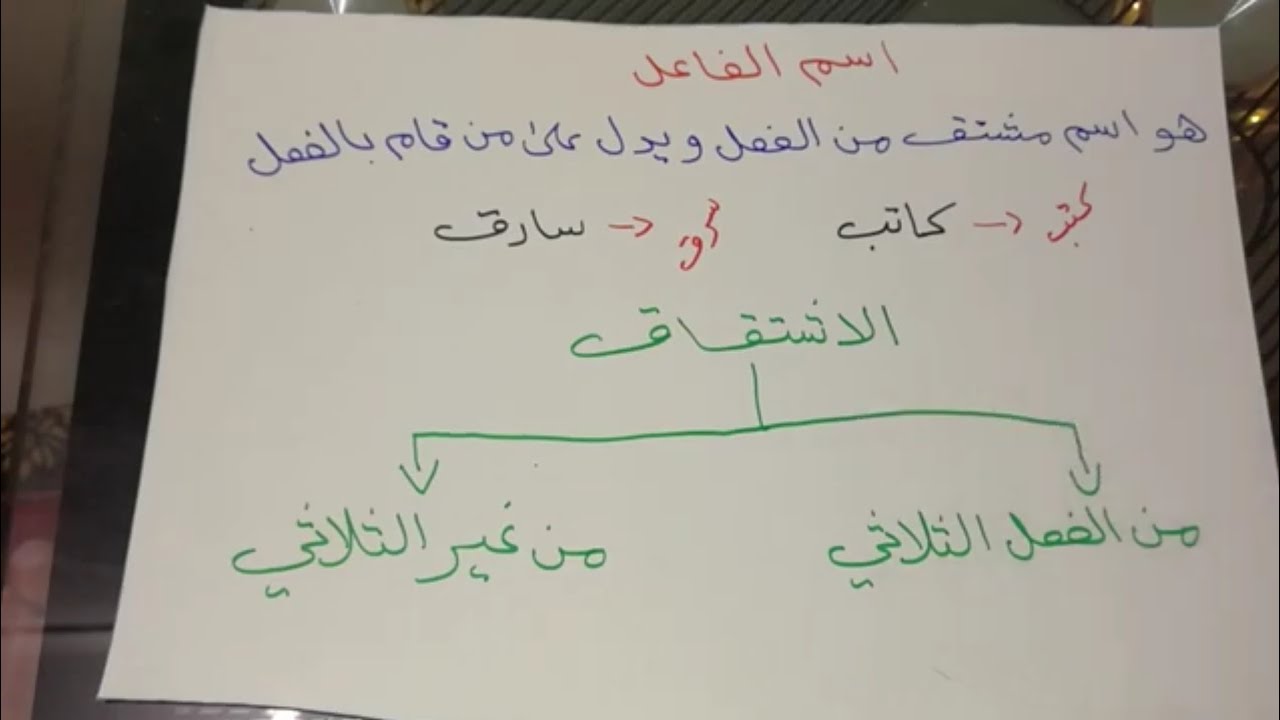 اسم الفاعل
هو اسم مشتق من الفعل ويدل على من قام بالفعل
كتب → كاتب سرق → سارق
الاشتقاق
من الفعل الثلاثي من غير الثلاثي